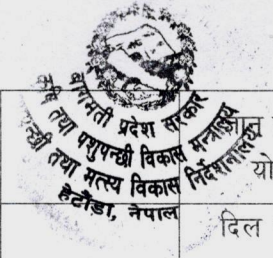 बागमती प्रदेश सरकार
कृषि तथा पशुपन्छी विकास मन्त्रालय
पशुपन्छी तथा मत्स्य विकास निर्देशनालय
हेटौंडा, नेपाल
यो
दिल